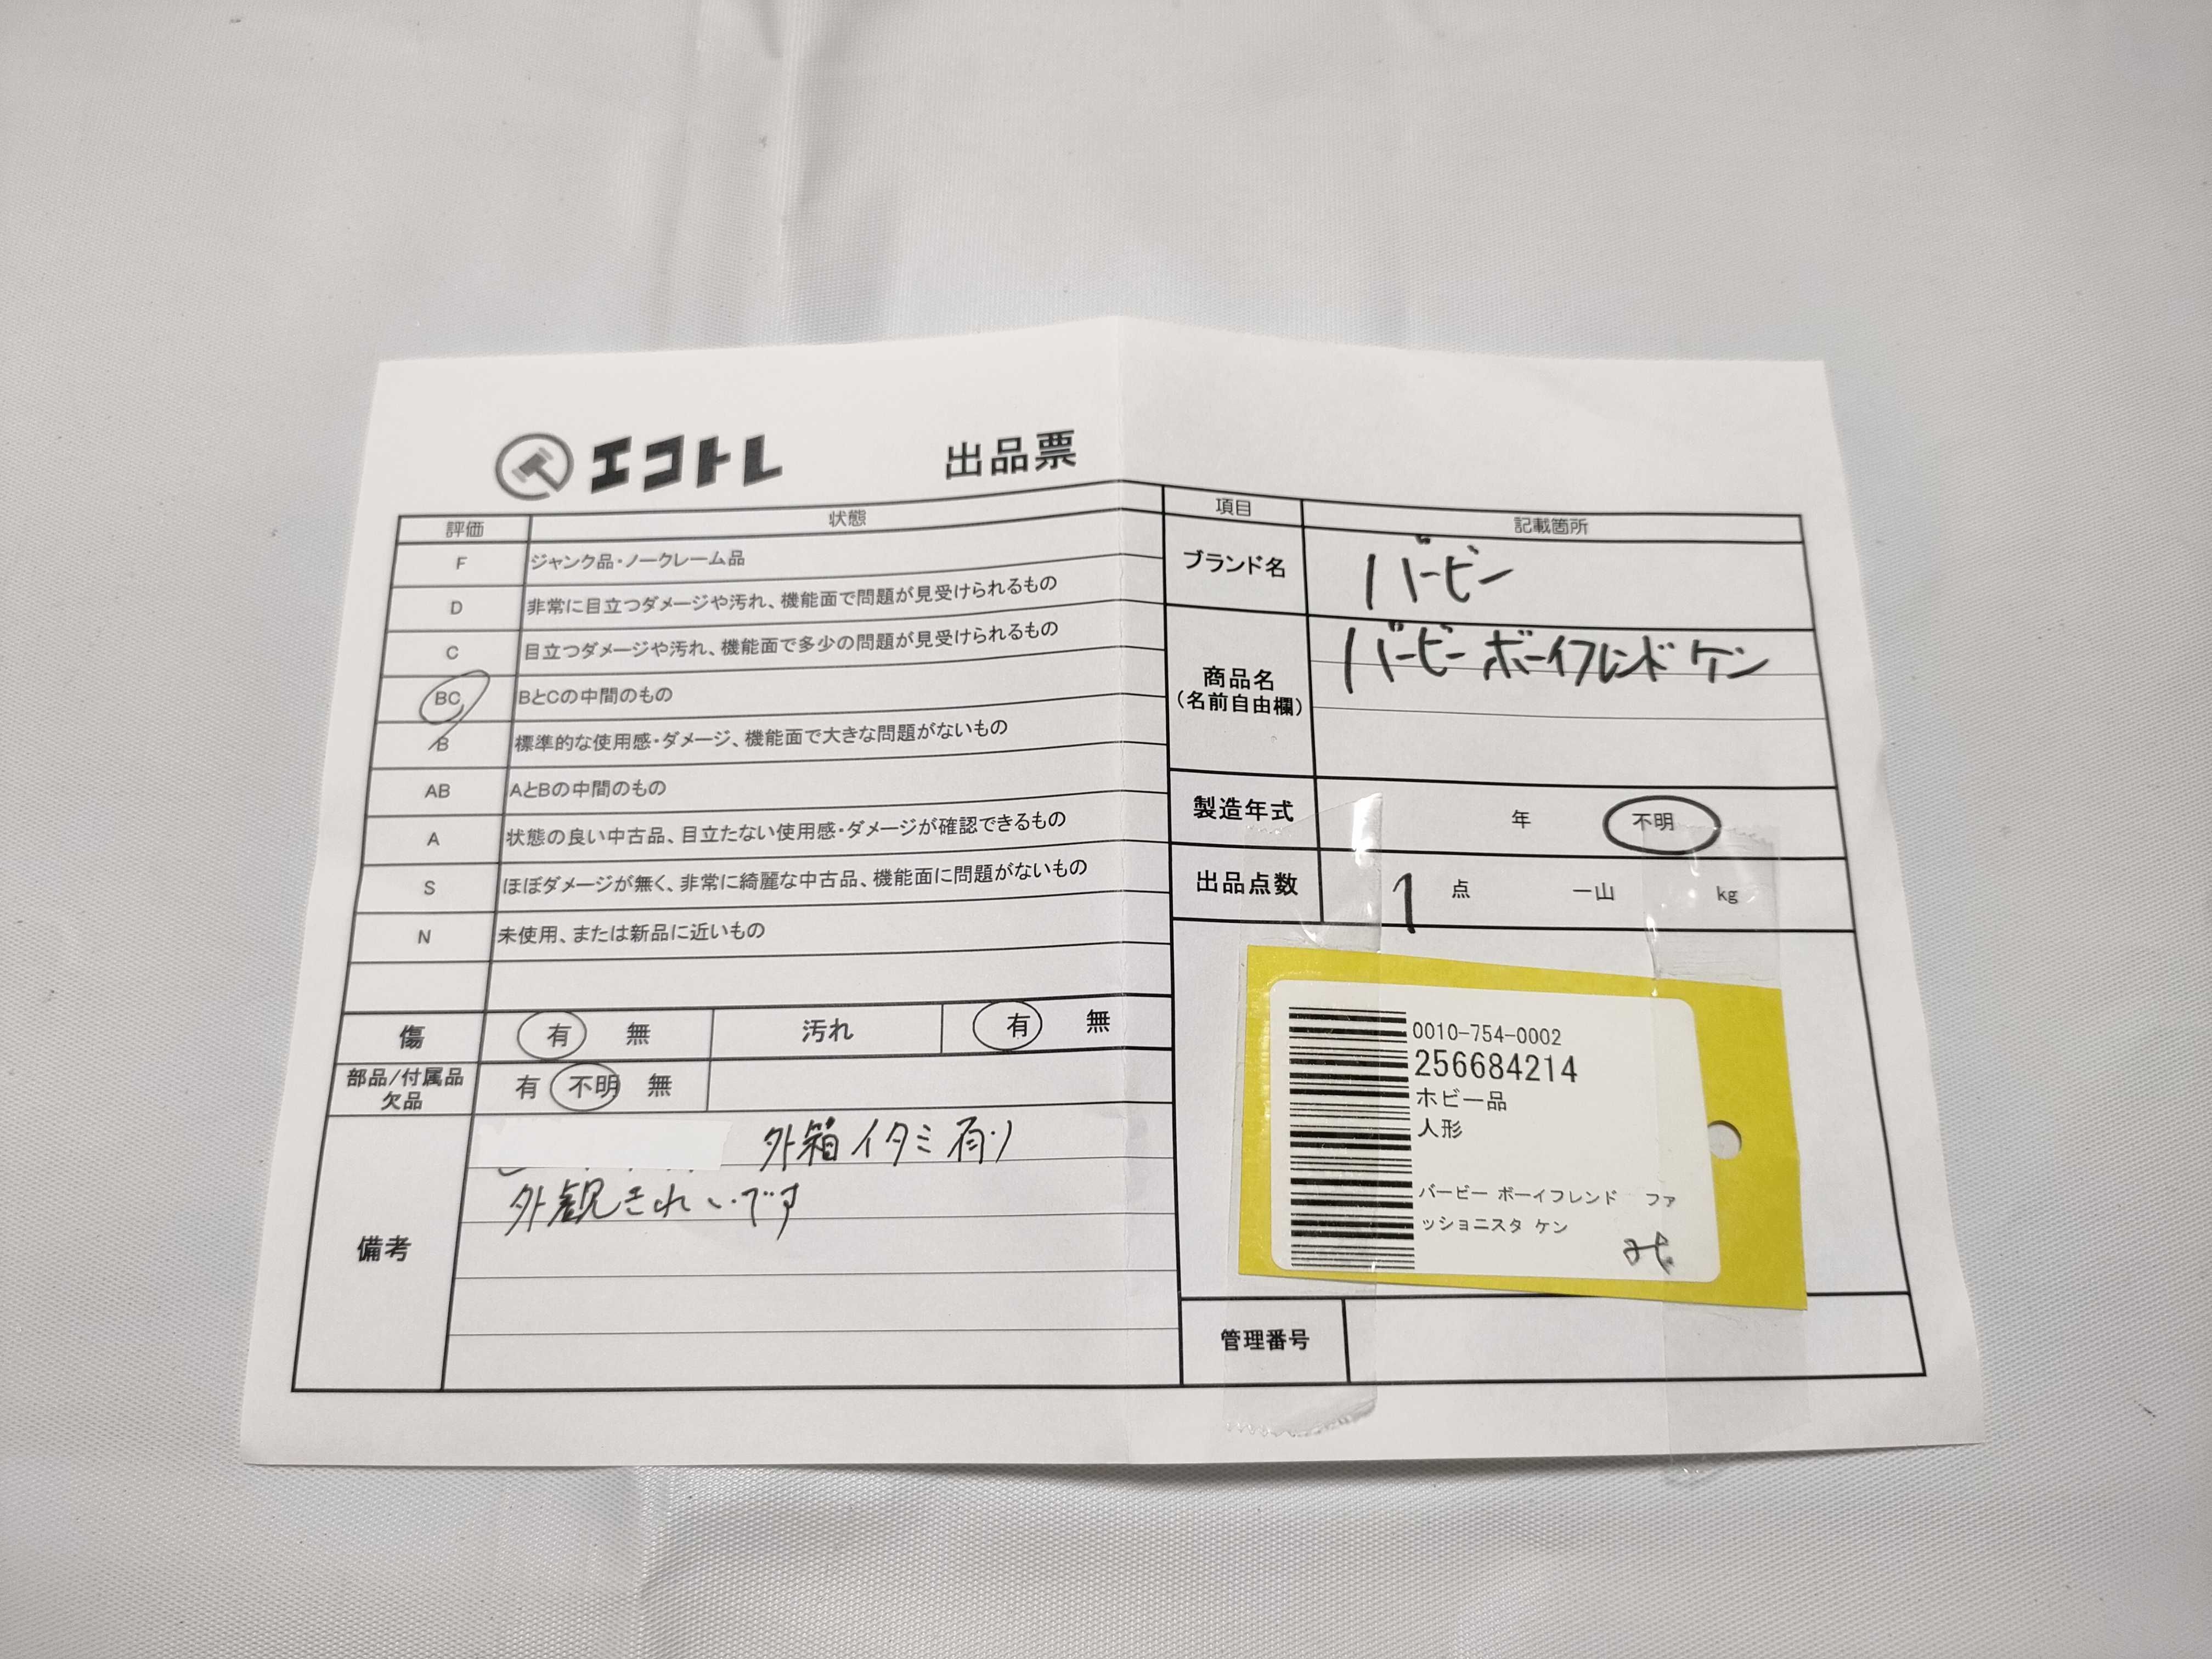 エコトレ 出品票
評価 状態
F ジャンク品・ノークレーム品
D 非常に目立つダメージや汚れ、機能面で問題が見受けられるもの
C 目立つダメージや汚れ、機能面で多少の問題が見受けられるもの
BC BとCの中間のもの
B 標準的な使用感・ダメージ、機能面で大きな問題がないもの
AB AとBの中間のもの
A 状態の良い中古品、目立たない使用感・ダメージが確認できるもの
S ほぼダメージが無く、非常に綺麗な中古品、機能面に問題がないもの
N 未使用、または新品に近いもの
傷 有 無 汚れ 有 無
部品/付属品
欠品 有 不明 無
備考
外箱イタミ有り
外観きれいです
項目 記載箇所
ブランド名 バービー
商品名
(名前自由欄) バービー ボーイフレンド ケン
製造年式 年 不明
出品点数 1 点 一山 kg
0010-754-0002
256684214
ホビー品
人形
バービー ボーイフレンド ファ
ッショニスタ ケン
管理番号